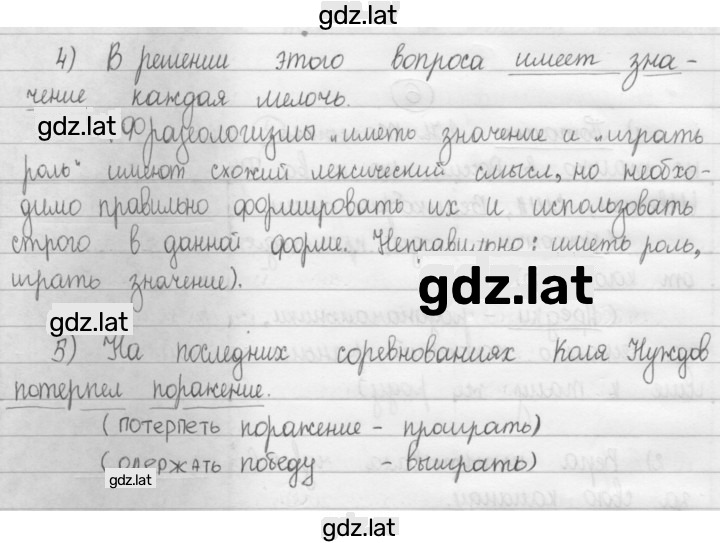 gdz.lat
4) В решении этого вопроса имеет зна-
чение каждая мелочь.
gdz.lat
Фразеологизмы „иметь значение и „играть
роль" имеют схожий лексический смысл, но необхо-
димо правильно формировать их и использовать
строго в данной форме. Неправильно: иметь роль,
играть значение).
gdz.lat
gdz.lat
5) На последних соревнованиях Коля Нуждов
потерпел поражение.
(потерпеть поражение - проиграть)
(одержать победу - выиграть)
gdz.lat
gdz.lat